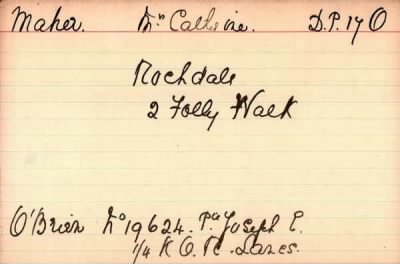 Maher. Mrs Catherine. D.P. 17 O
Rochdale
2 Folly Walk
O'Brien No 19624. Pte Joseph E.
1/4 K.O.R. Lancs.